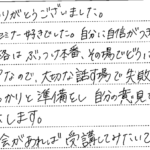 りがとうございました。
セミナー好きでした。自分に自信がつき
絡はぶっつけ本番、その場でどうに
なので、大切な話す場で失敗
っかりと準備をし 自分の意見を
くします。
会があれば 受講してみたいで